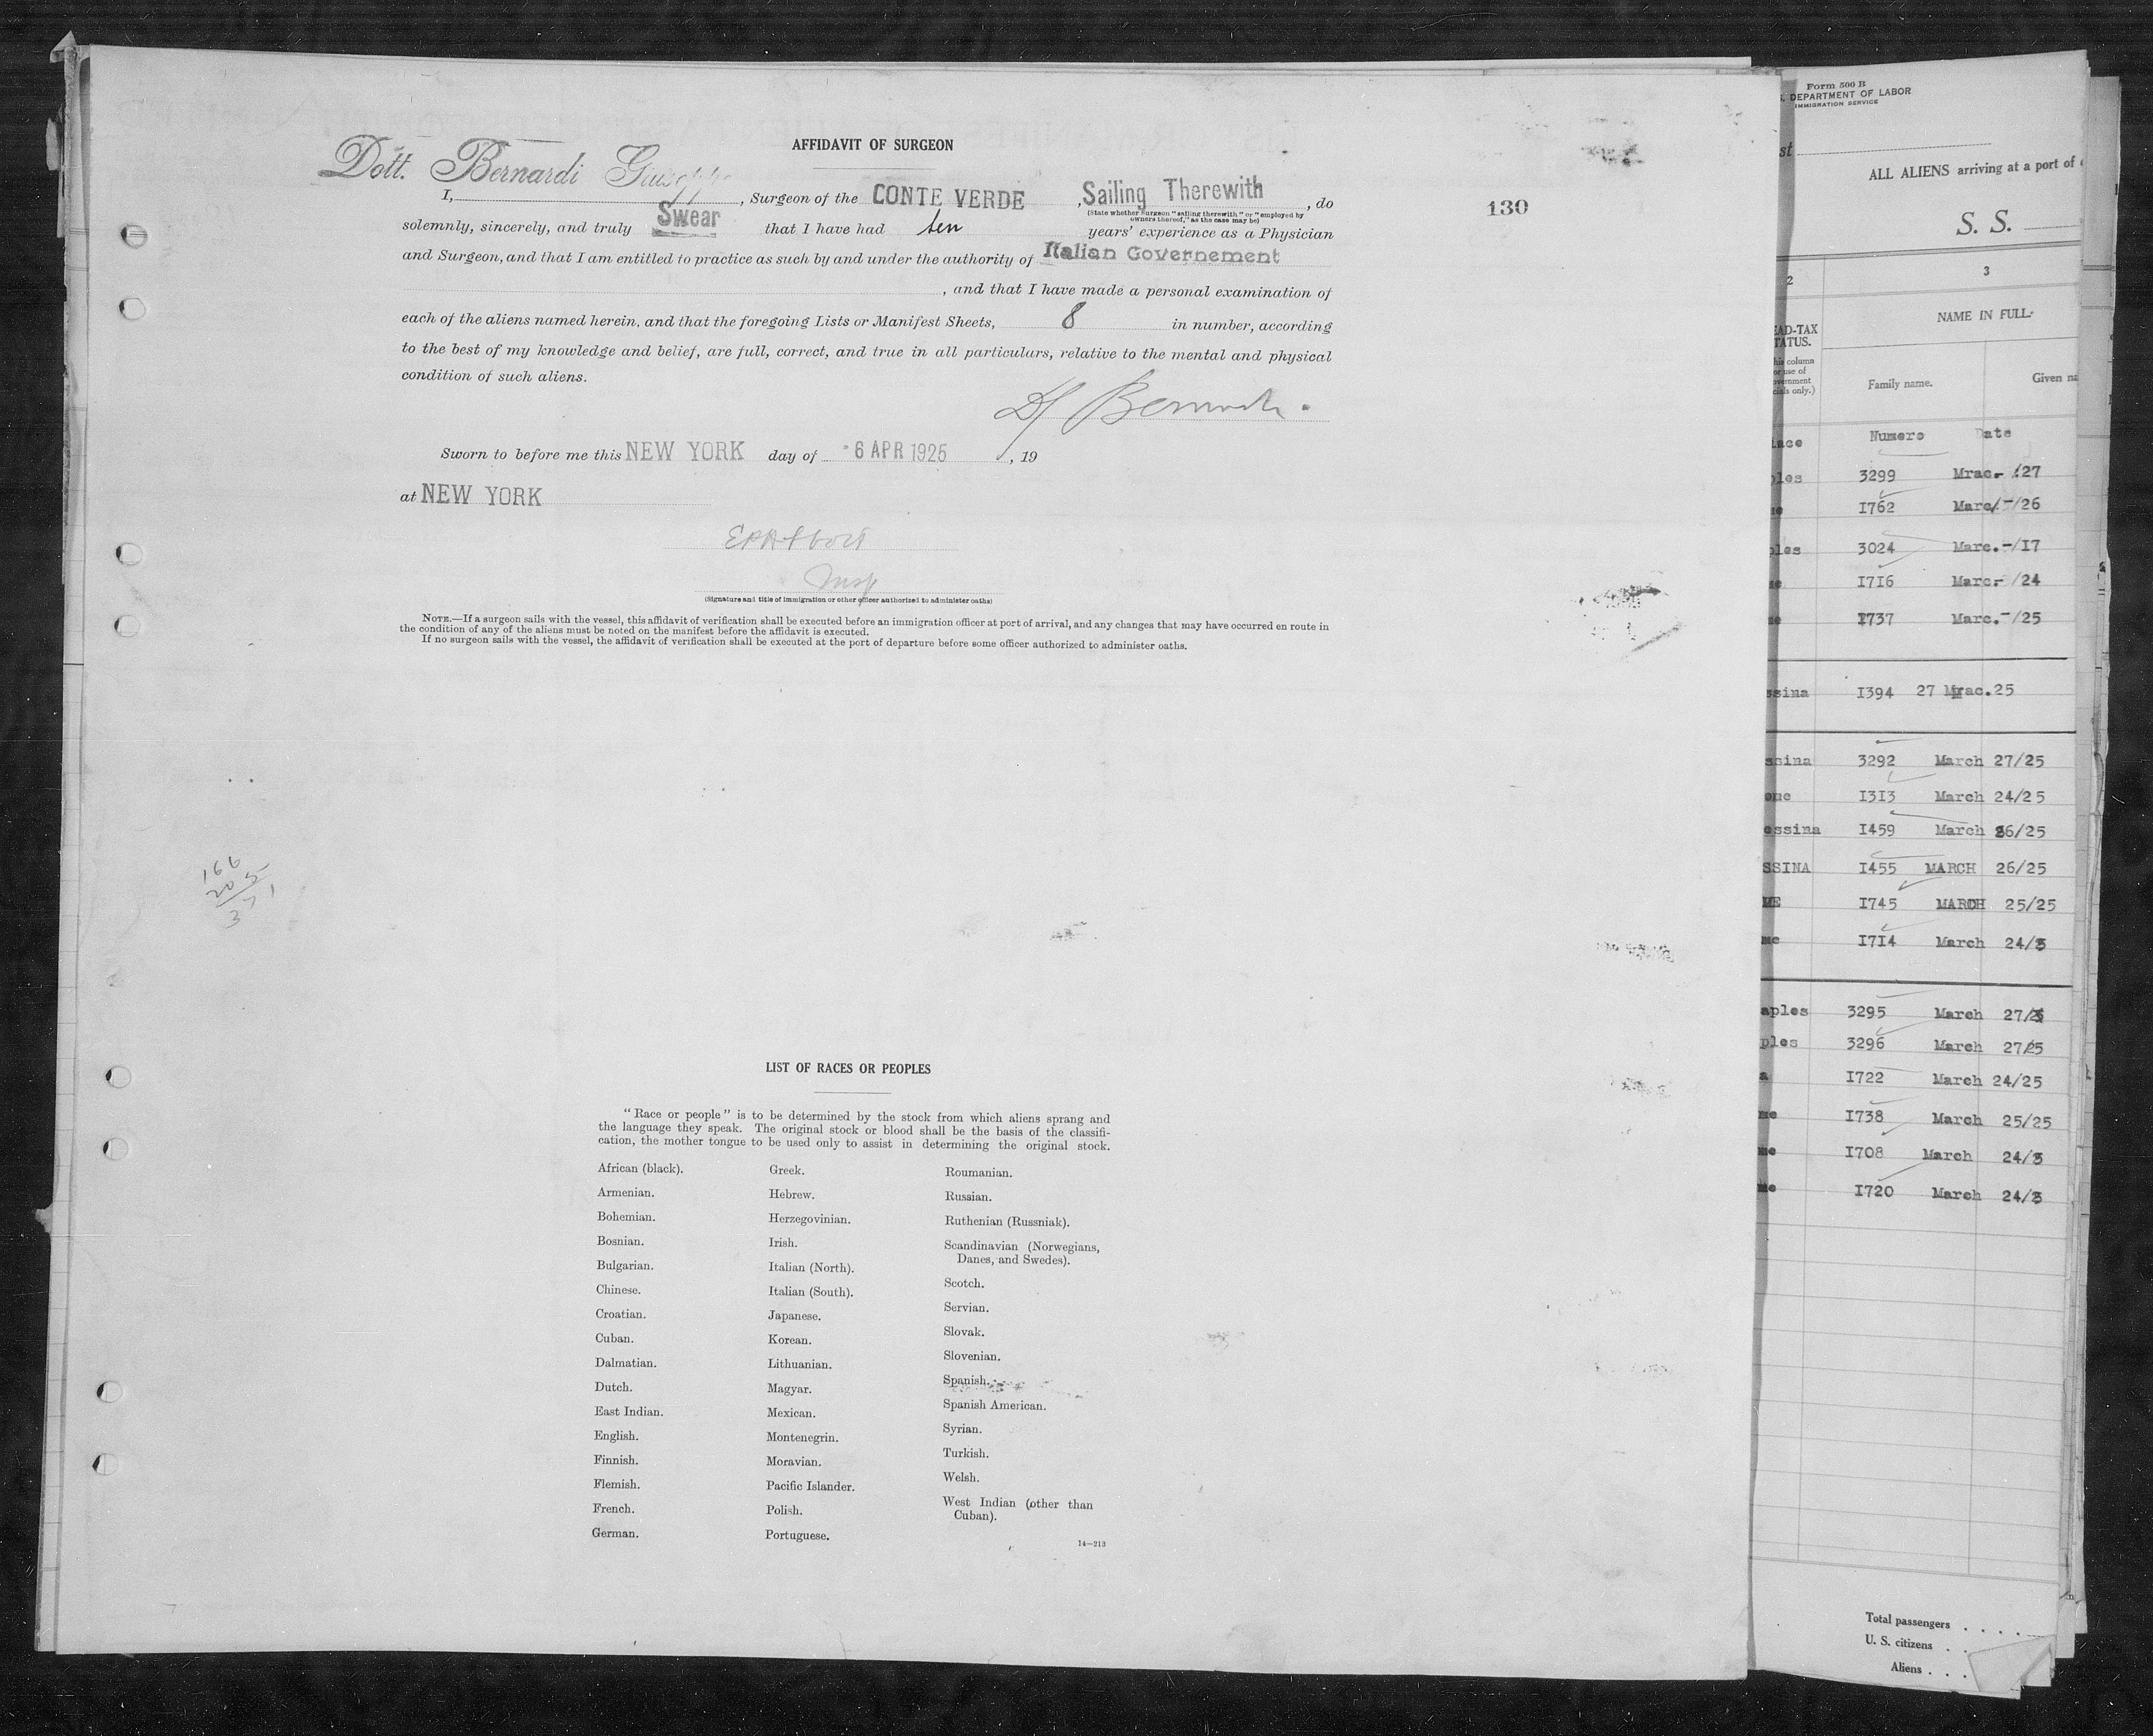 AFFIDAVIT OF SURGEON
Dott. Bernardi Giuseppe
I, , Surgeon of the CONTE VERDE , Sailing Therewith , do
(State whether Surgeon "sailing therewith" or "employed by
owners thereof," as the case may be)
130
solemnly, sincerely, and truly Swear that I have had ten years' experience as a Physician
and Surgeon, and that I am entitled to practice as such by and under the authority of Italian Governement
, and that I have made a personal examination of
each of the aliens named herein, and that the foregoing Lists or Manifest Sheets, 8 in number, according
to the best of my knowledge and belief, are full, correct, and true in all particulars, relative to the mental and physical
condition of such aliens.
Sworn to before me this NEW YORK day of 6 APR 1925 , 19
at NEW YORK
Insp
(Signature and title of immigration or other officer authorized to administer oaths)
NOTE.—If a surgeon sails with the vessel, this affidavit of verification shall be executed before an immigration officer at port of arrival, and any changes that may have occurred en route in
the condition of any of the aliens must be noted on the manifest before the affidavit is executed.
If no surgeon sails with the vessel, the affidavit of verification shall be executed at the port of departure before some officer authorized to administer oaths.
166
205
371
LIST OF RACES OR PEOPLES
"Race or people" is to be determined by the stock from which aliens sprang and
the language they speak. The original stock or blood shall be the basis of the classifi-
cation, the mother tongue to be used only to assist in determining the original stock.
African (black).
Armenian.
Bohemian.
Bosnian.
Bulgarian.
Chinese.
Croatian.
Cuban.
Dalmatian.
Dutch.
East Indian.
English.
Finnish.
Flemish.
French.
German.
Greek.
Hebrew.
Herzegovinian.
Irish.
Italian (North).
Italian (South).
Japanese.
Korean.
Lithuanian.
Magyar.
Mexican.
Montenegrin.
Moravian.
Pacific Islander.
Polish.
Portuguese.
Roumanian.
Russian.
Ruthenian (Russniak).
Scandinavian (Norwegians,
Danes, and Swedes).
Scotch.
Servian.
Slovak.
Slovenian.
Spanish.
Spanish American.
Syrian.
Turkish.
Welsh.
West Indian (other than
Cuban).
14—213
Form 500 B
DEPARTMENT OF LABOR
IMMIGRATION SERVICE
st
ALL ALIENS arriving at a port of
S. S.
2 3
AD-TAX
TATUS.
NAME IN FULL
his column
or use of
vernment
cials only.)
Family name. Given na
lace Numero Date
ples 3299 Mrac.- /27
I762 Marc/-/26
ples 3024 Marc.-/I7
I7I6 Marc.- /24
I737 Marc.-/25
ssina I394 27 Mrac.25
ssina 3292 March 27/25
ome I3I3 March 24/25
essina I459 March 26/25
SSINA I455 MARCH 26/25
ME I745 MARCH 25/25
me I7I4 March 24/3
aples 3295 March 27/
ples 3296 March 27/25
a I722 March 24/25
me I738 March 25/25
me I708 March 24/3
me I720 March 24/3
Total passengers . . . .
U. S. citizens . .
Aliens . . .